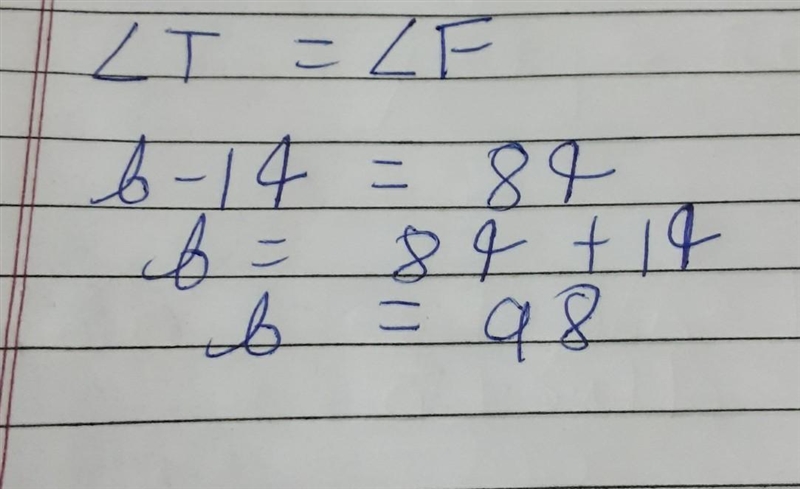 ∠T = ∠F
b - 14 = 84
b = 84 + 14
b = 98